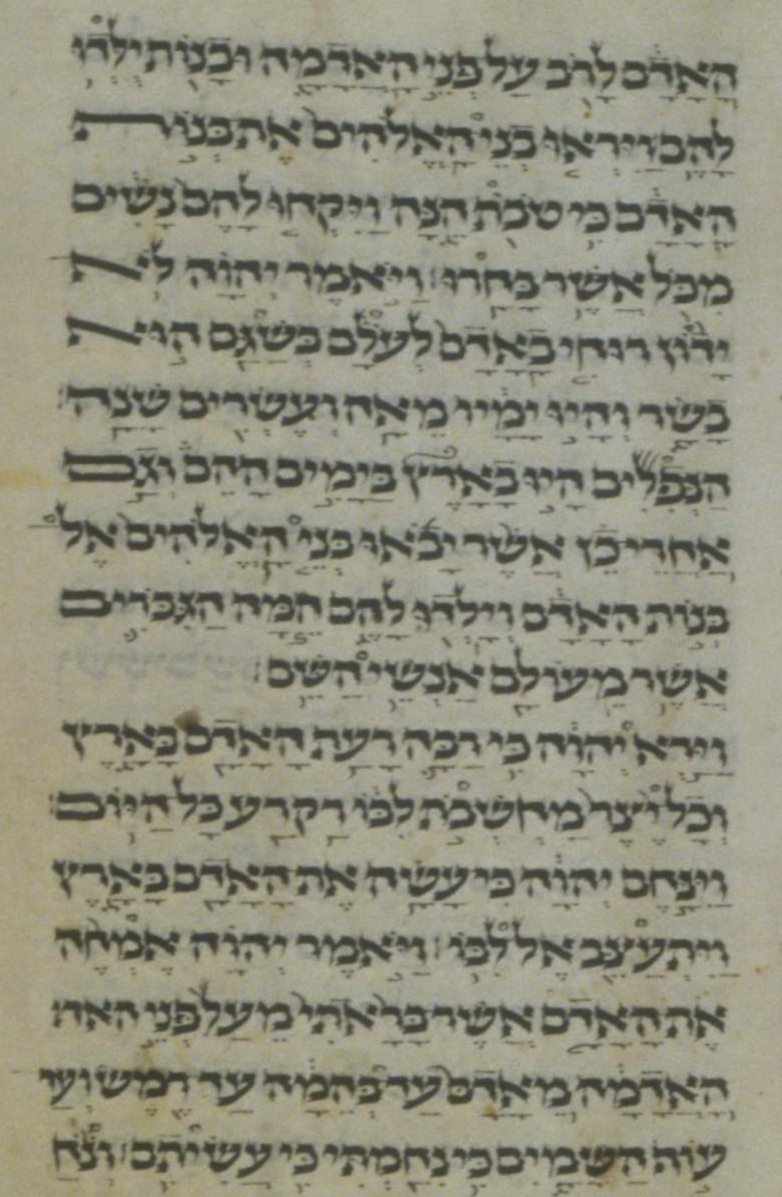 הָאָדָם לָרֹב עַל פְּנֵי הָאֲדָמָה וּבָנוֹת יֻלְּדוּ
לָהֶם וַיִּרְאוּ בְנֵי הָאֱלֹהִים אֶת בְּנוֹת
הָאָדָם כִּי טֹבֹת הֵנָּה וַיִּקְחוּ לָהֶם נָשִׁים
מִכֹּל אֲשֶׁר בָּחָרוּ וַיֹּאמֶר יְהוָה לֹא
יָדוֹן רוּחִי בָאָדָם לְעֹלָם בְּשַׁגַּם הוּא
בָשָׂר וְהָיוּ יָמָיו מֵאָה וְעֶשְׂרִים שָׁנָה
הַנְּפִלִים הָיוּ בָאָרֶץ בַּיָּמִים הָהֵם וְגַם
אַחֲרֵי כֵן אֲשֶׁר יָבֹאוּ בְּנֵי הָאֱלֹהִים אֶל
בְּנוֹת הָאָדָם וְיָלְדוּ לָהֶם הֵמָּה הַגִּבֹּרִים
אֲשֶׁר מֵעוֹלָם אַנְשֵׁי הַשֵּׁם
וַיַּרְא יְהוָה כִּי רַבָּה רָעַת הָאָדָם בָּאָרֶץ
וְכָל יֵצֶר מַחְשְׁבֹת לִבּוֹ רַק רַע כָּל הַיּוֹם
וַיִּנָּחֶם יְהוָה כִּי עָשָׂה אֶת הָאָדָם בָּאָרֶץ
וַיִּתְעַצֵּב אֶל לִבּוֹ וַיֹּאמֶר יְהוָה אֶמְחֶה
אֶת הָאָדָם אֲשֶׁר בָּרָאתִי מֵעַל פְּנֵי האד
הָאֲדָמָה מֵאָדָם עַד בְּהֵמָה עַד רֶמֶשׂ וְעַד
עוֹף הַשָּׁמָיִם כִּי נִחַמְתִּי כִּי עֲשִׂיתִם וְנֹחַ